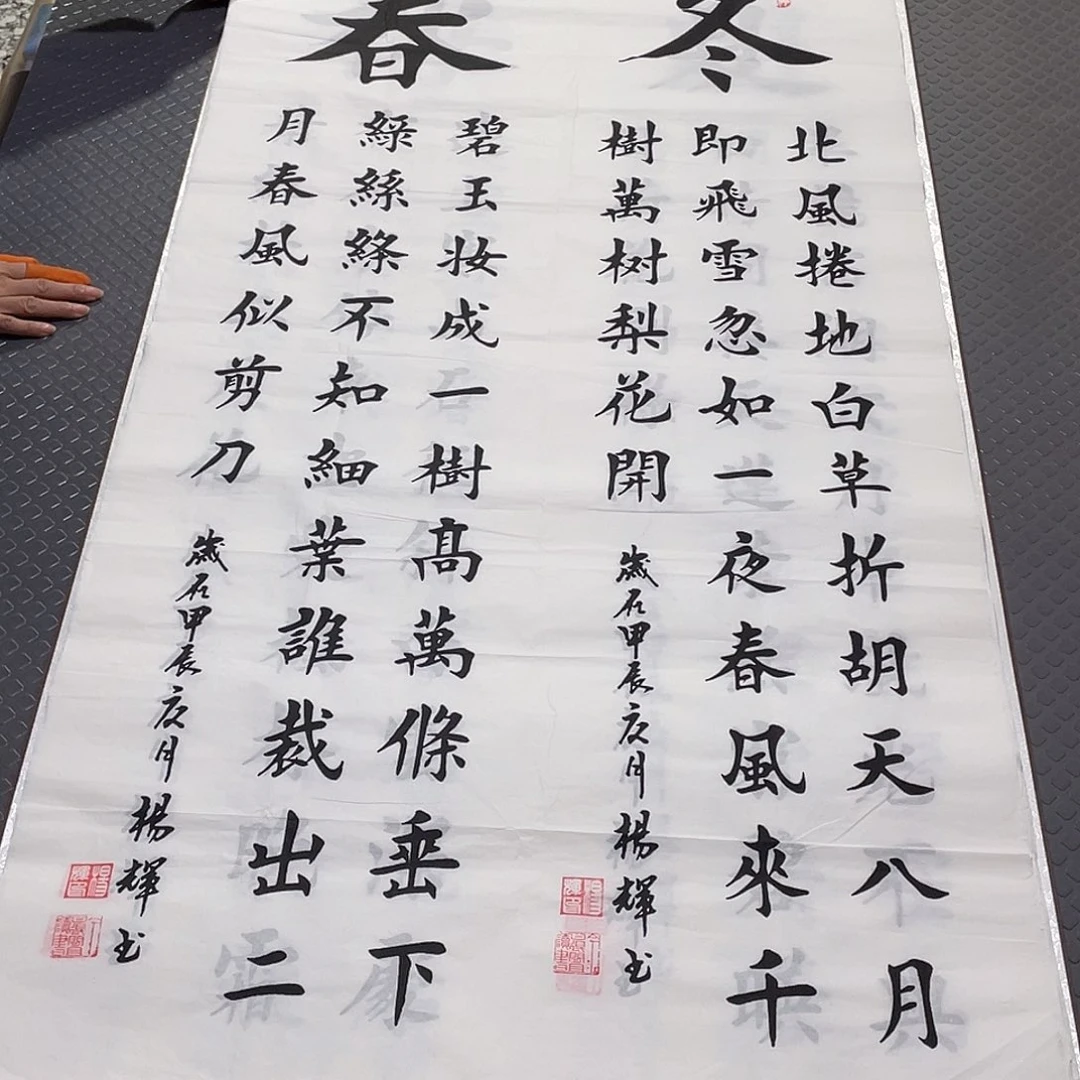 冬
北風捲地白草折胡天八月
即飛雪忽如一夜春風來千
樹萬树梨花開
歲在甲辰夏月楊輝书
春
碧玉妆成一樹髙萬條垂下
緑絲絛不知細葉誰裁出二
月春風似剪刀
歲在甲辰夏月楊輝书